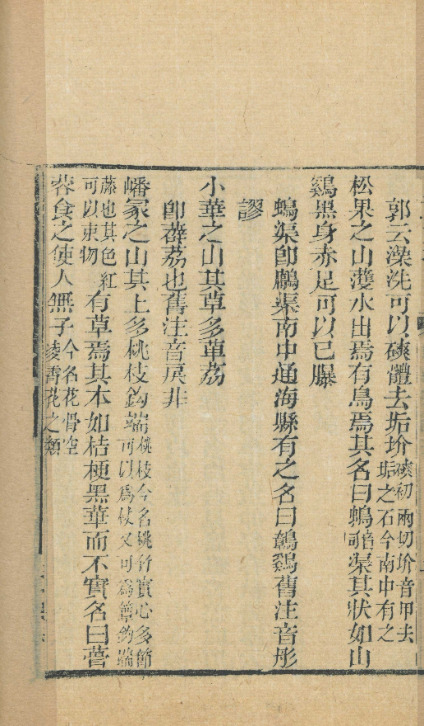 郭云澡洗可以磢體去垢圿磢初兩切圿音甲去垢之石今南中有之
松果之山濩水出焉有鳥焉其名曰䳋音彤渠其狀如山
鷄黑身赤足可以已𦢊
䳋渠卽鸀渠南中通海縣有之名曰鷄舊注音彤
謬
小華之山其草多萆荔
卽薜荔也舊注音戾非
嶓冢之山其上多桃枝鈎端桃枝今名桃竹實心多節可以爲杖又可爲簟鈎端
藤也其色紅可以束物有草焉其本如桔梗黑華而不實名曰蓇
蓉食之使人無子今名花骨空凌霄花之類